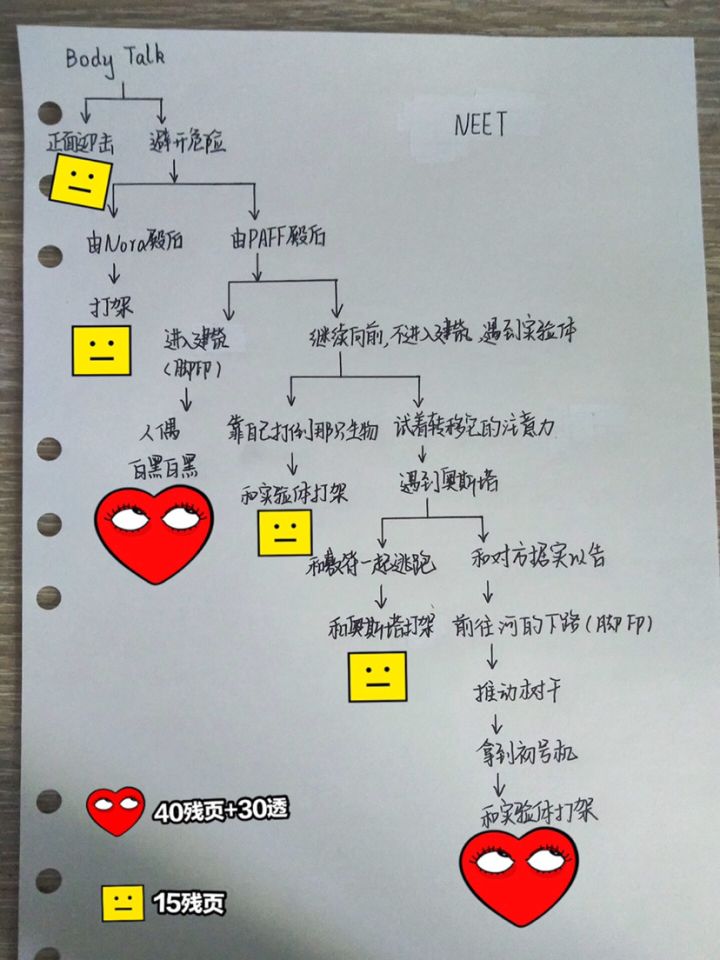 Body Talk
NEET
正面迎击
避开危险
由Nora殿后
由PAFF殿后
打架
进入建筑
(脚印)
继续向前,不进入建筑,遇到实验体
人偶
白黑白黑
靠自己打倒那只生物
试着转移它的注意力
和实验体打架
遇到奥斯塔
和教符一起逃跑
和对方据实以告
和奥斯塔打架
前往河的下路(脚印)
推动树干
拿到初号机
和实验体打架
40残页+30透
15残页